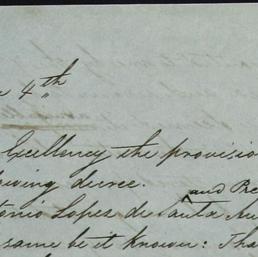 4th
Excellency the provisio
owing decree.
and Pre
tonio Lopez de Santa An
same be it known: Tha